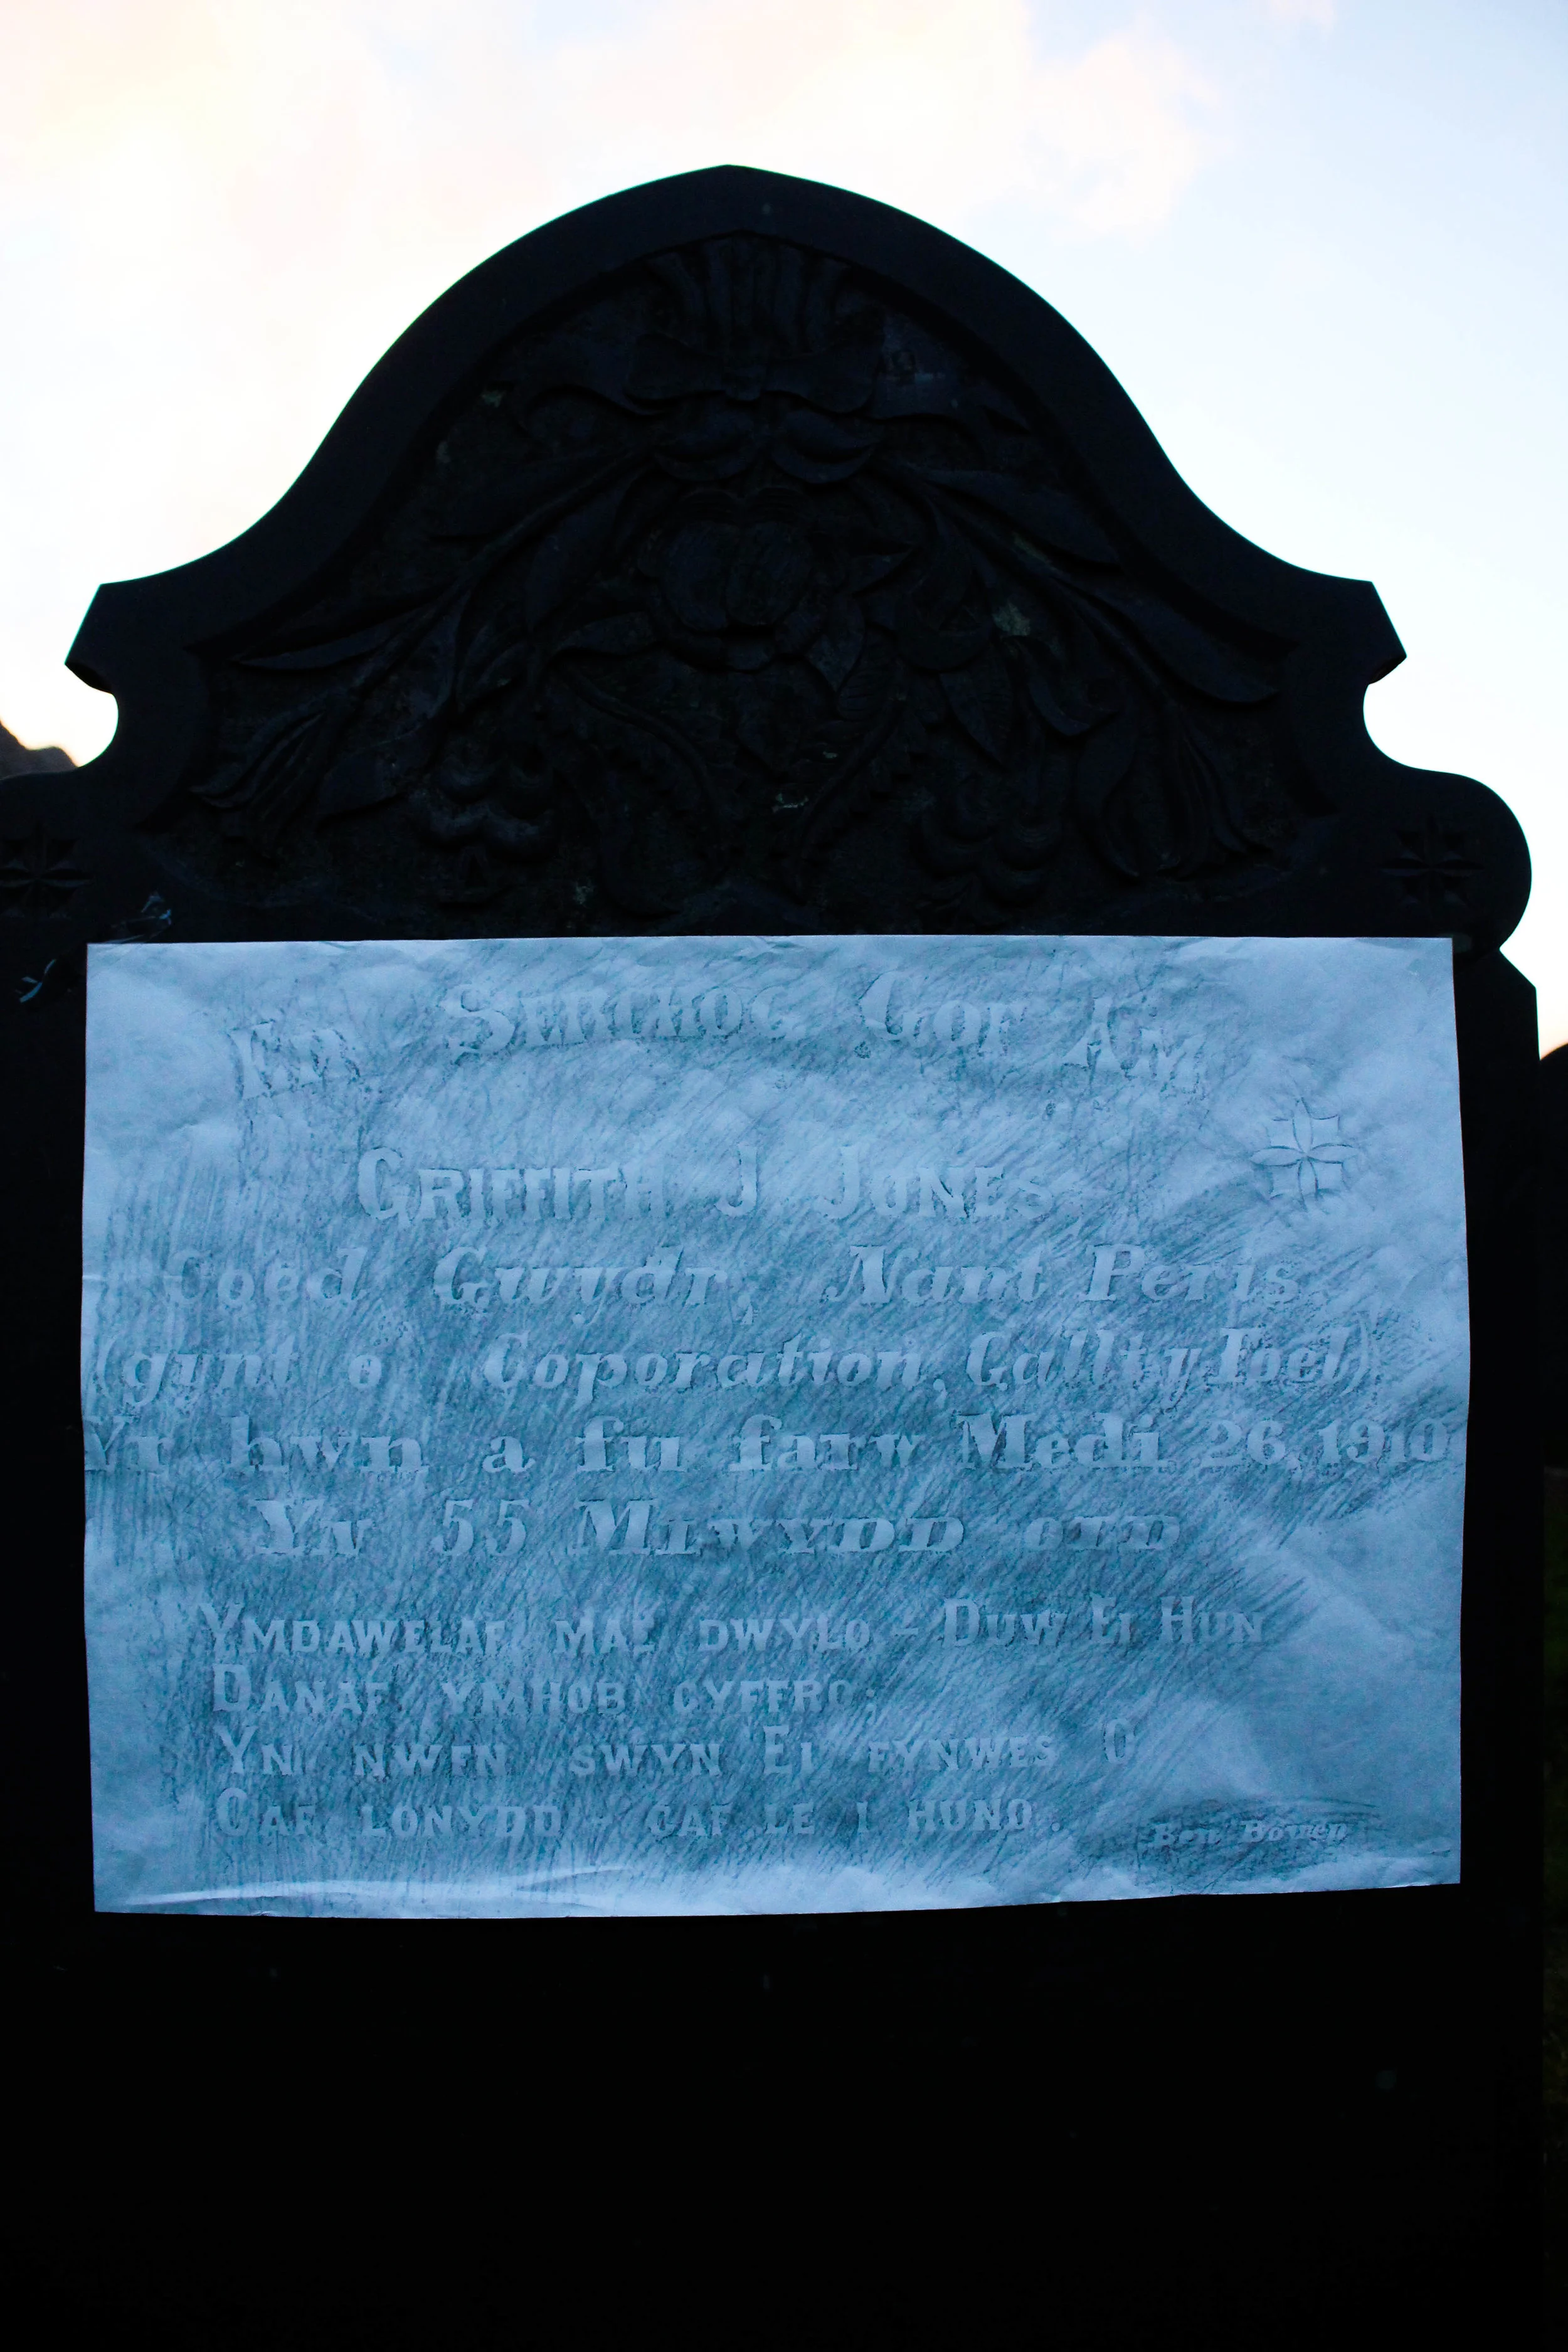 Er Serchog Gof Am
Griffith J. Jones
Coed Gwydr, Nant Peris.
(gynt o Coporation, Gallty Foel)
Yr hwn a fu farw Medi 26, 1910
Yn 55 Mlwydd oed
Ymdawelaf, mae dwylo – Duw Ei Hun
Danaf ymhob cyffro;
Yn nwfn swyn Ei fynwes O
Caf lonydd – caf le i huno.
Ben Bowen